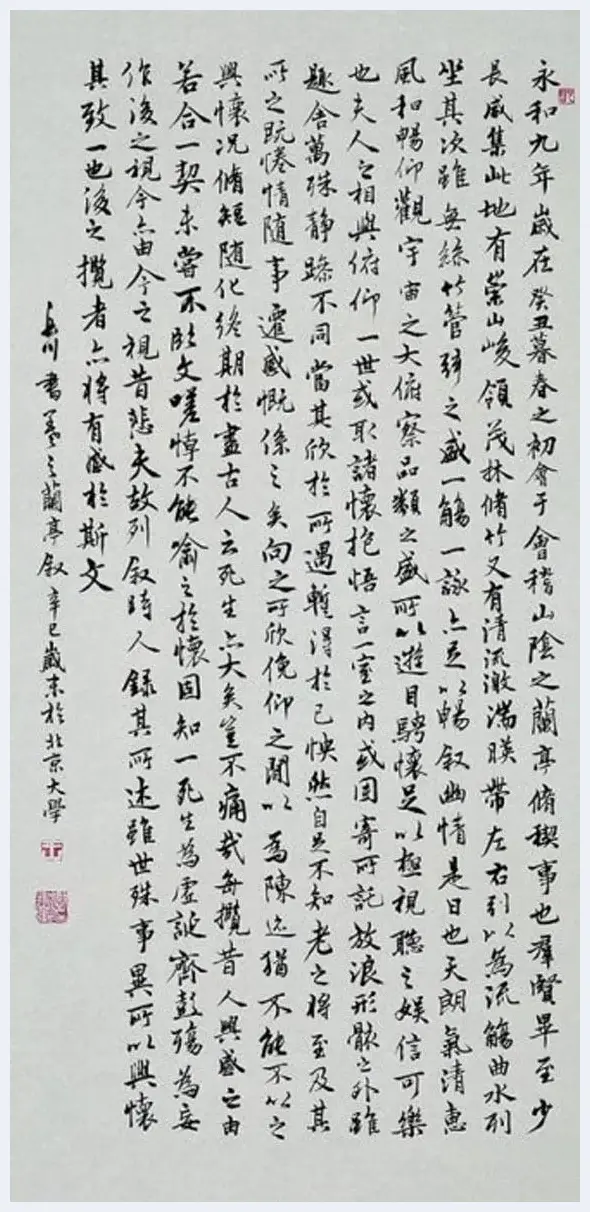 永和九年歲在癸丑暮春之初會于會稽山陰之蘭亭脩稧事也羣賢畢至少
長咸集此地有崇山峻領茂林脩竹又有清流激湍暎帶左右引以為流觴曲水列
坐其次雖無絲竹管弦之盛一觴一詠亦足以暢叙幽情是日也天朗氣清惠
風和暢仰觀宇宙之大俯察品類之盛所以遊目騁懷足以極視聽之娛信可樂
也夫人之相與俯仰一世或取諸懷抱悟言一室之內或因寄所託放浪形骸之外雖
趣舍萬殊靜躁不同當其欣於所遇暫得於己怏然自足不知老之將至及其
所之既惓情随事遷感慨係之矣向之所欣俛仰之閒以為陳迹猶不能不以之
興懷況脩短随化終期於盡古人云死生亦大矣豈不痛哉每攬昔人興感之由
若合一契未嘗不臨文嗟悼不能喻之於懷固知一死生為虛誕齊彭殤為妄
作後之視今亦由今之視昔悲夫故列叙時人錄其所述雖世殊事異所以興懷
其致一也後之攬者亦將有感於斯文
川書羲之蘭亭叙辛巳歲末於北京大學